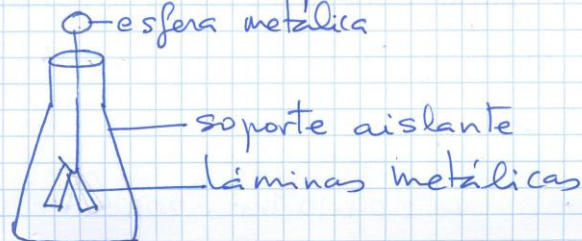 esfera metálica
soporte aislante
láminas metálicas